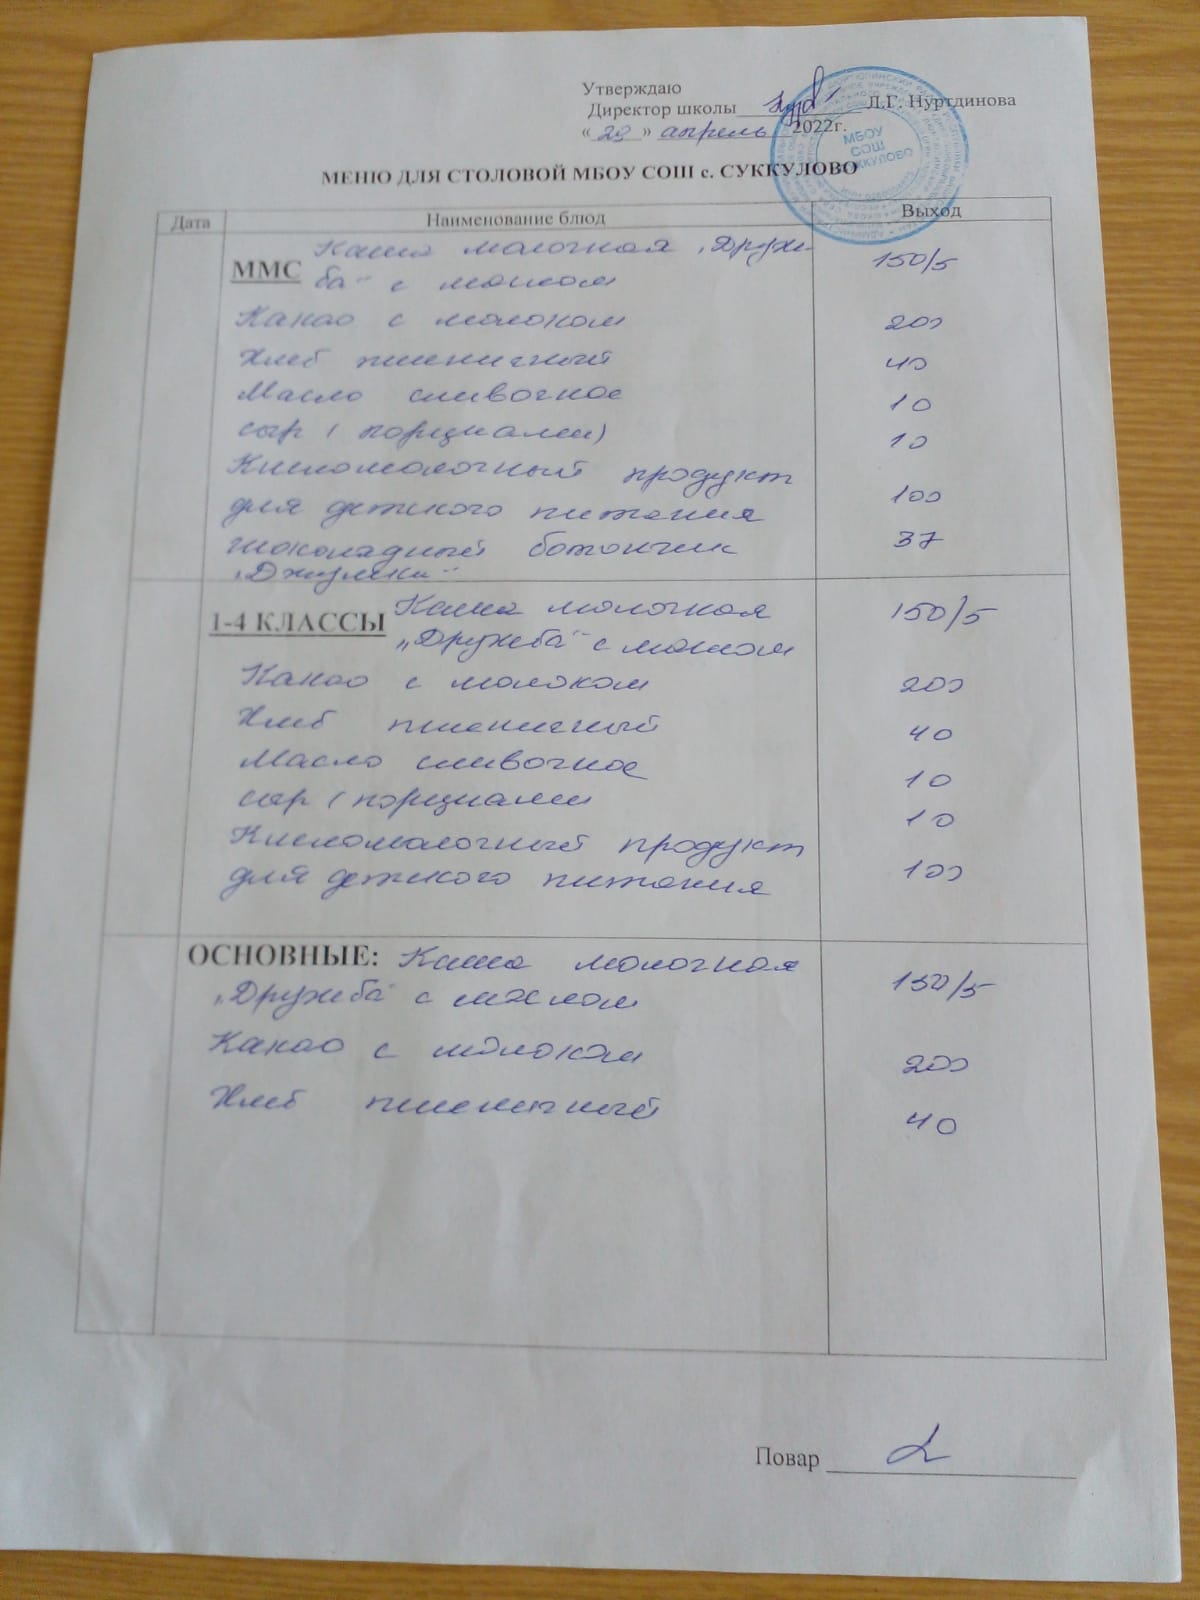 Утверждаю
Директор школы Л.Г. Нуртдинова
« 29 » апрель 2022г.
МБОУ
СОШ
СУККУЛОВО
МЕНЮ ДЛЯ СТОЛОВОЙ МБОУ СОШ с. СУККУЛОВО
Дата Наименование блюд Выход
ММС Каша молочная „Друж- 150/5
ба“ с маслом
Какао с молоком 200
Хлеб пшеничный 40
Масло сливочное 10
сыр (порциями) 10
Кисломолочный продукт
для детского питания 100
шоколадный батончик 37
1-4 КЛАССЫ Каша молочная 150/5
„Дружба“ с маслом
Какао с молоком 200
Хлеб пшеничный 40
Масло сливочное 10
сыр (порциями 10
Кисломолочный продукт
для детского питания 100
ОСНОВНЫЕ: Каша молочная 150/5
„Дружба“ с маслом
Какао с молоком 200
Хлеб пшеничный 40
Повар